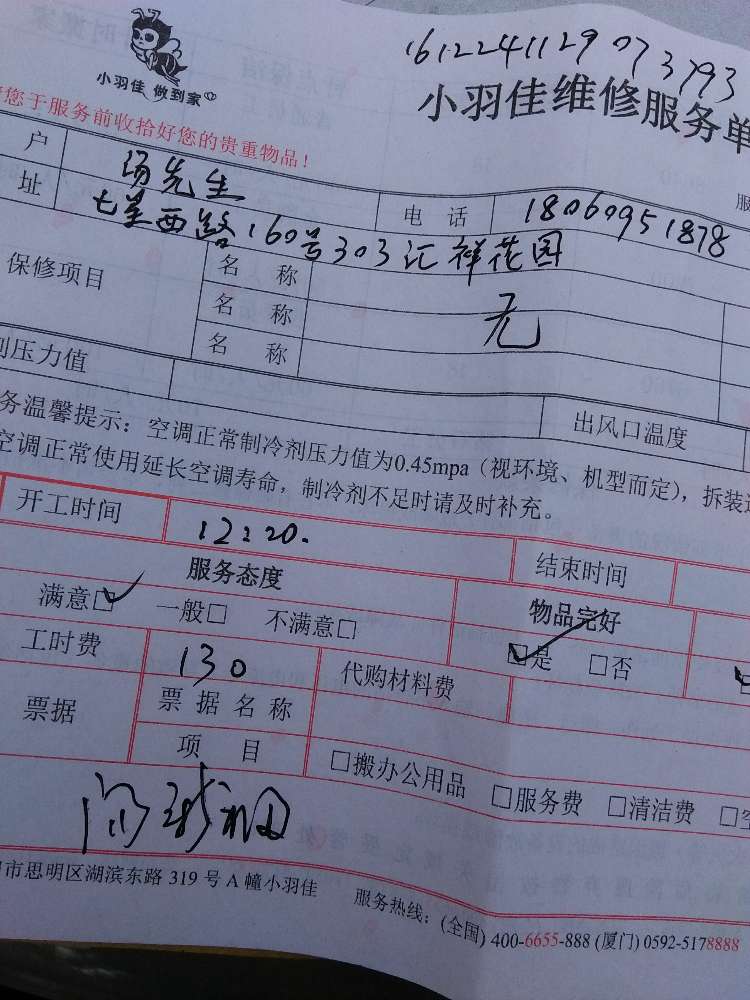 1612241129073793
小羽佳 做到家
小羽佳维修服务单
您于服务前收拾好您的贵重物品！
户 汤先生 电 话 18060951878
址 七星西路160号303汇祥花园
保修项目 名 称
名 称 无
名 称
剂压力值 出风口温度
务温馨提示：空调正常制冷剂压力值为0.45mpa（视环境、机型而定），拆装
空调正常使用延长空调寿命，制冷剂不足时请及时补充。
开工时间 12:20. 结束时间
服务态度 物品完好
满意☑ 一般□ 不满意□ ☑是 □否
工时费 130 代购材料费
票据 票据名称
项 目 □搬办公用品 □服务费 □清洁费 □空
市思明区湖滨东路 319 号 A 幢小羽佳 服务热线：(全国) 400-6655-888 (厦门) 0592-5178888